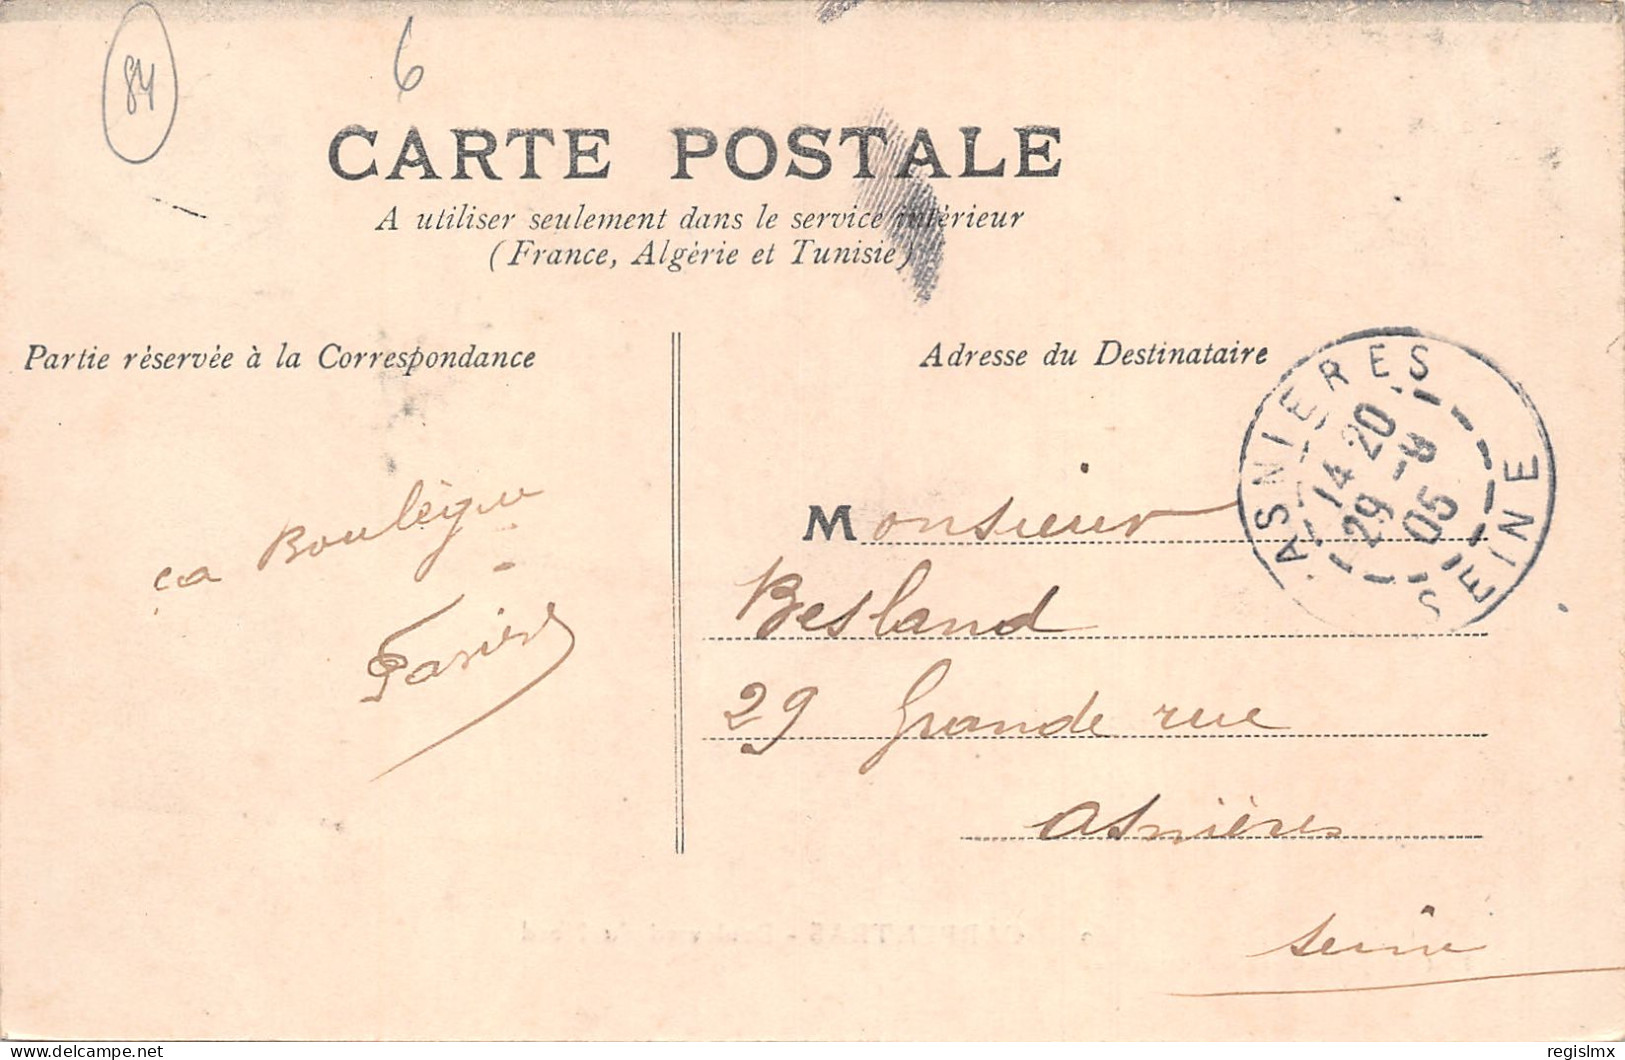 84
6
CARTE POSTALE
A utiliser seulement dans le service intérieur
(France, Algérie et Tunisie)
Partie réservée à la Correspondance
Adresse du Destinataire
ASNIERES
14 20
29 -8
05
SEINE
ça Boulègue
Monsieur
Besland
29 Grande rue
Asnières
Seine
CARPENTRAS - Boulevard du Nord
delcampe.net
regislmx